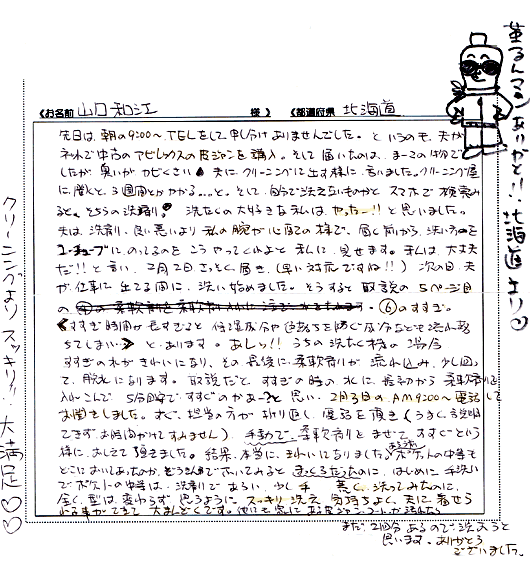 《お名前 山口和江 様》《都道府県 北海道
先日は、朝の9:00〜、TELをして申し分けありませんでした。というのも、夫が
ネットで中古のアビレックスの皮ジャンを購入。そして届いたのは、まーこの物で
したが臭いがカビくさい 夫にクリーニングに出す様に、言いました。クリーニング屋
に聞くと、3週間とかかかる…と。そして、自分で洗えないものかとスマホで検索み
ると。そちらの洗剤!! 洗たくの大好きな私は、やったー!!と思いました。
夫は、洗剤の良い悪いより私の腕が心配の様で、届く前から、洗い方を
ユーチューブにのってるのをこうやってくれよと私に、見せます。私は、大丈夫
だ!!と言い、2月2日さっそく届き、(早い対応ですね!!) 次の日、夫
が仕事に出てる間に、洗い始めました。そうすると取説の5ページ目
の ⑥のすすぎ。
《すすぎ時間が長すぎると保湿成分や色落ちを防ぐ成分なども流れ落
ちてしまい》とあります。あしっ!! うちの洗たく機の場合
すすぎの水がきれいになり、その最後に、柔軟剤が流れ込み、少し回っ
て、脱水になります。取説だとすすぎの時の水に、最初から柔軟剤を
入れこんで 5分回すですすぐのかあ〜?と思い、2月3日のAM9:00〜電話して
お聞きしました。すぐ、担当の方が折り返し電話を頂き(うまく説明
できずお時間かけてすみません)、手動で、柔軟剤をまぜてすすぐという
様に、おしえて頂きました。結果、本当に、きれいになりました。ポケットの中等も
どこにおいてあったのか、ぞうきんでふいてみるとまっくろだったのに、はじめに手洗い
でポケットの中等は、洗剤であらい、少し手荒く洗ってみたのに、
全く、型は変わらず、思うようにスッキリ洗え、気持ちよく、夫に着せら
れる事ができて大まんぞくです。他にも家にある皮ジャン、コートが洗れたら
まだ、2回分あるので洗おうと
思います。ありがとう
ございました。
菫るんてる ありがと!! 北海道より♡
クリーニングよりスッキリ!! 大満足♡♡